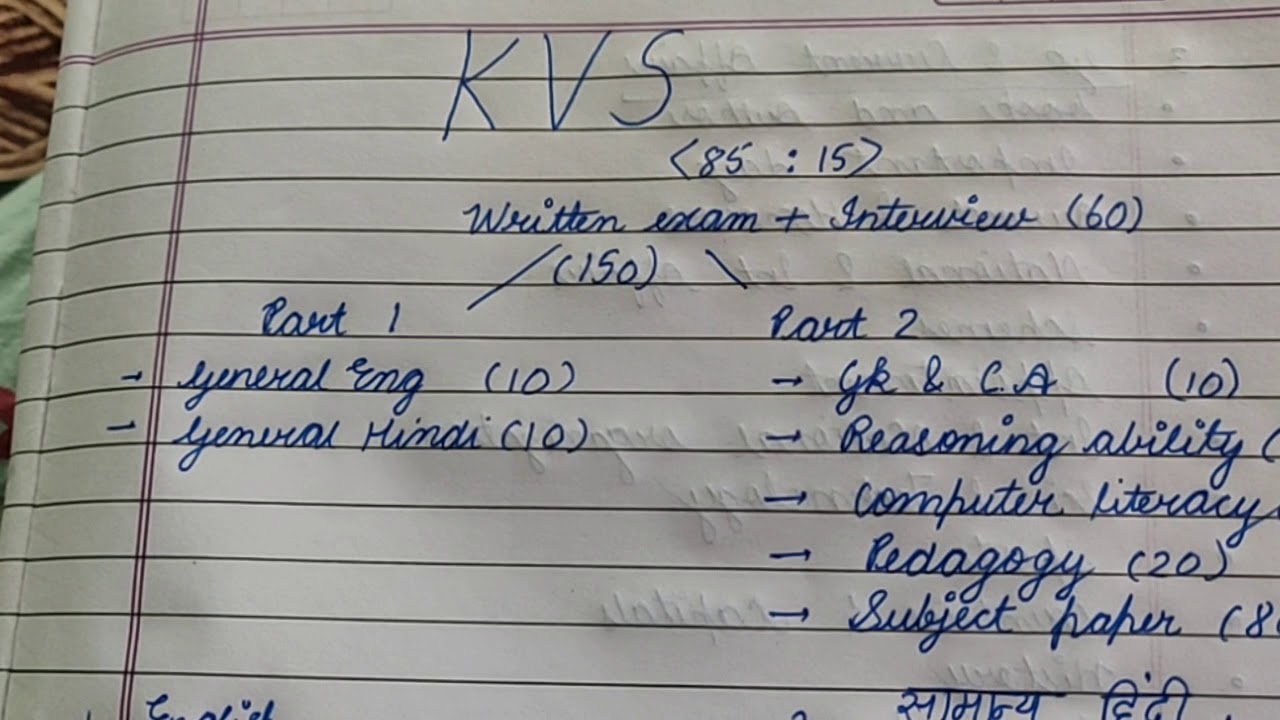 KVS
<85 : 15>
Written exam + Interview (60)
(150)
Part 1 Part 2
- General Eng (10) → GK & C.A (10)
- General Hindi (10) → Reasoning ability (
→ Computer literacy
→ Pedagogy (20)
→ Subject paper (8
English सामान्य हिंदी